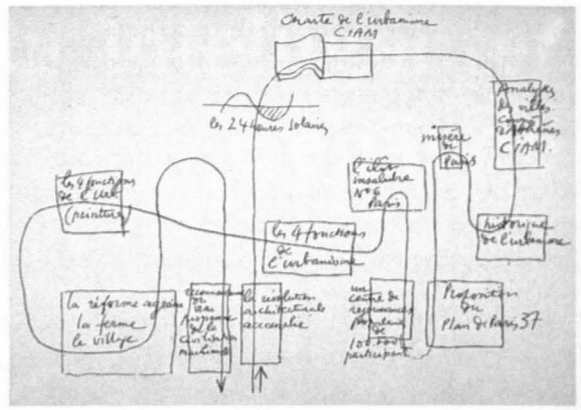 Charte de l'urbanisme
CIAM
les 24 heures solaires
Analyses
des villes
d'Athènes
CIAM.
misère
de
Paris
l'îlot
insalubre
N°6
Paris
les 4 fonctions
de l'
(peinture)
les 4 fonctions
de
l'urbanisme
historique
de l'urbanisme
la réforme agraire
la ferme
le village
programme
de la
civilisation
machiniste
la révolution
architecturale
accomplie
un
centre de
réjouissances
populaires
de
100.000
participants
Proposition
du
Plan de Paris 37